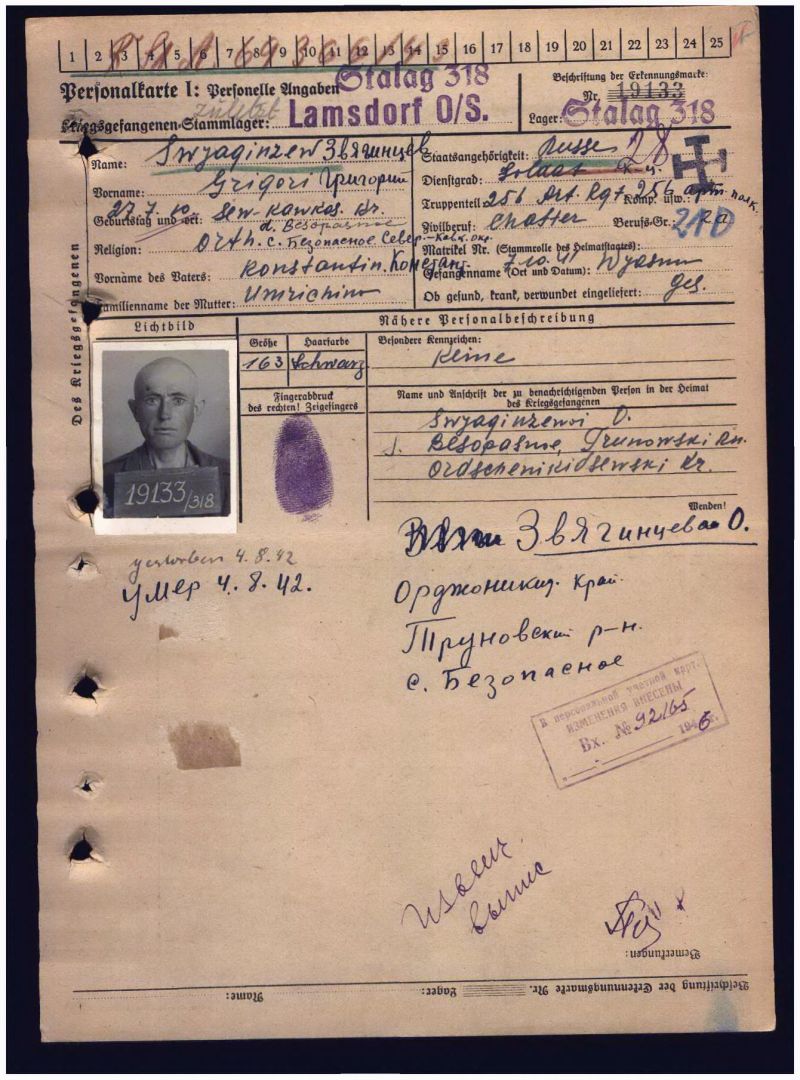 1 2 3 4 5 6 7 8 9 10 11 12 13 14 15 16 17 18 19 20 21 22 23 24 25
Personalkarte I: Personelle Angaben
Stalag 318
Beschriftung der Erkennungsmarke:
Nr. 19133
zuletzt
Kriegsgefangenen-Stammlager: Lamsdorf O/S.
Lager: Stalag 318
Des Kriegsgefangenen
Name: Swjaginzew Звягинцев
Vorname: Grigori Григорий
Geburtstag und -ort: 27.7. Sew-Kawkas. Kr.
d. Besopasnoe
Religion: Orth. с. Безопасное Север-Кавк. окр.
Vorname des Vaters: Konstantin. Констант.
Familienname der Mutter: Umrichino
Staatsangehörigkeit: Russe 28
Dienstgrad: Soldat
Truppenteil: 256 Art. Rgt. 256 арт. полк. Komp. usw.:
Zivilberuf: Berufs-Gr.: 210
Matrikel Nr. (Stammrolle des Heimatstaates):
Gefangenname (Ort und Datum): 7.10.41 Wjasma
Ob gesund, krank, verwundet eingeliefert: ges.
Lichtbild
Nähere Personalbeschreibung
Größe Haarfarbe Besondere Kennzeichen:
163 Schwarz Keine
Fingerabdruck
des rechten! Zeigefingers
Name und Anschrift der zu benachrichtigenden Person in der Heimat
des Kriegsgefangenen
Swjaginzewa O.
Besopasnoe, Trunowski Rn.
Ordschenikidsewski Kr.
19133/318
Wenden!
gestorben 4.8.42
умер 4.8.42.
Звягинцева О.
Орджоникид. Край.
Труновский р-н.
с. Безопасное
В персональную учетную карт.
ИЗМЕНЕНИЯ ВНЕСЕНЫ
Вх. № 92165
1946г.
Bemerkungen:
Name: Lager: Beschriftung der Erkennungsmarke Nr.